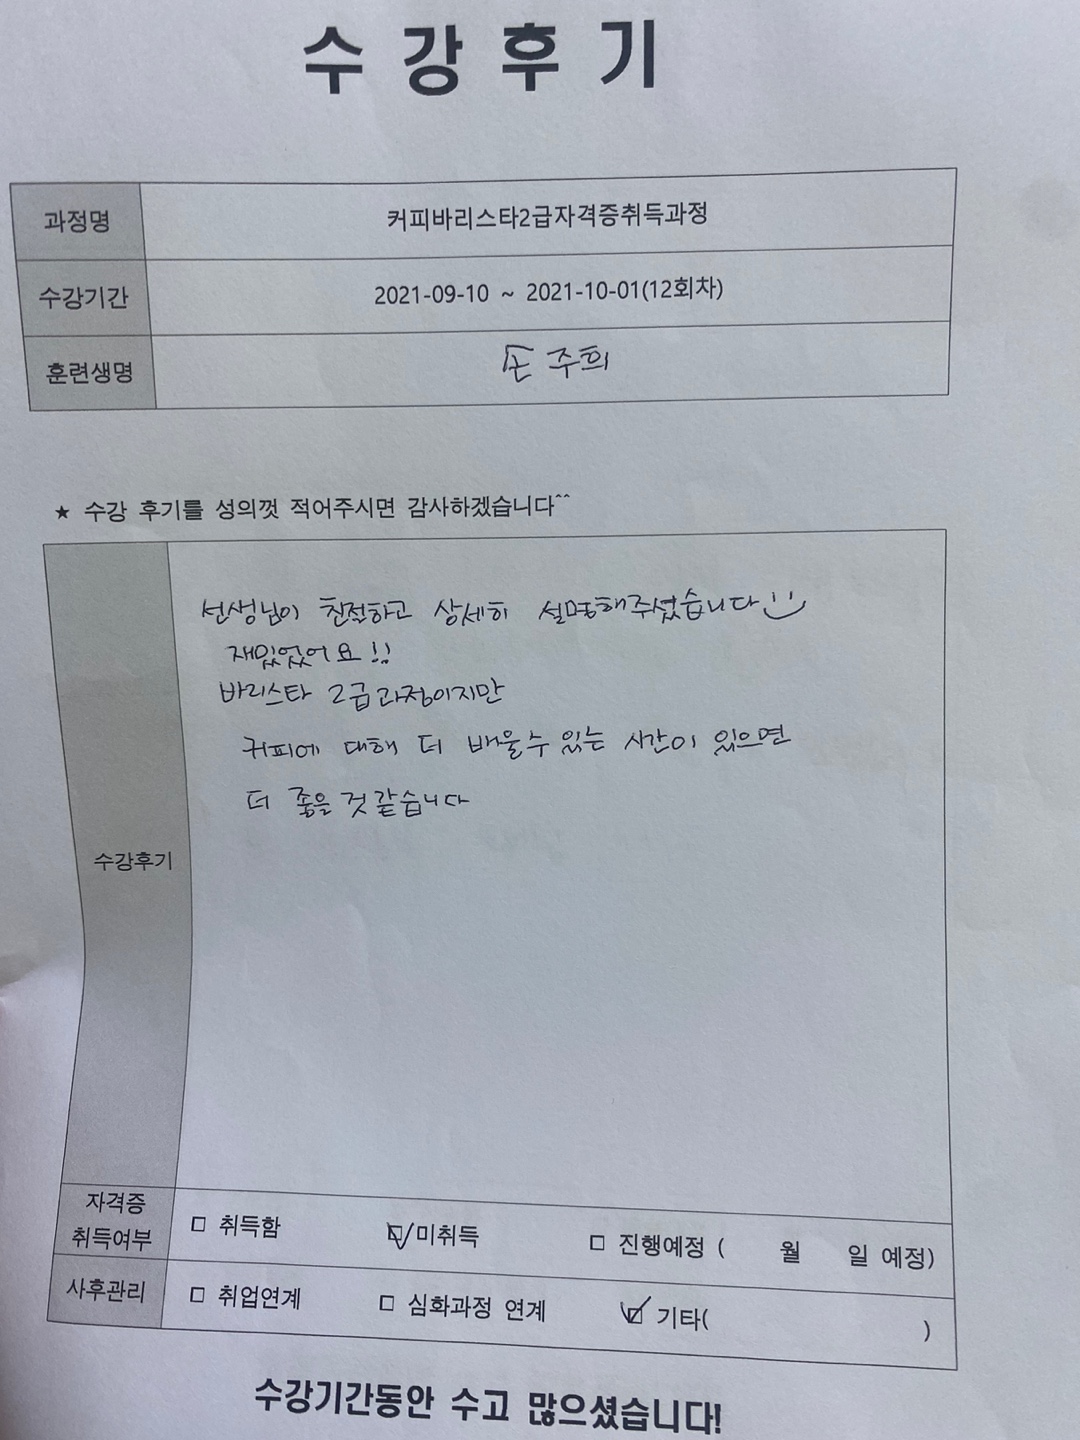 수강후기
과정명 커피바리스타2급자격증취득과정
수강기간 2021-09-10 ~ 2021-10-01(12회차)
훈련생명 손주희
★ 수강 후기를 성의껏 적어주시면 감사하겠습니다^^
선생님이 친절하고 상세히 설명해주셨습니다
재밌었어요!!
바리스타 2급과정이지만
커피에 대해 더 배울수 있는 시간이 있으면
더 좋을 것 같습니다
수강후기
자격증
취득여부 □ 취득함 ☑ 미취득 □ 진행예정 ( 월 일 예정)
사후관리 □ 취업연계 □ 심화과정 연계 ☑ 기타( )
수강기간동안 수고 많으셨습니다!